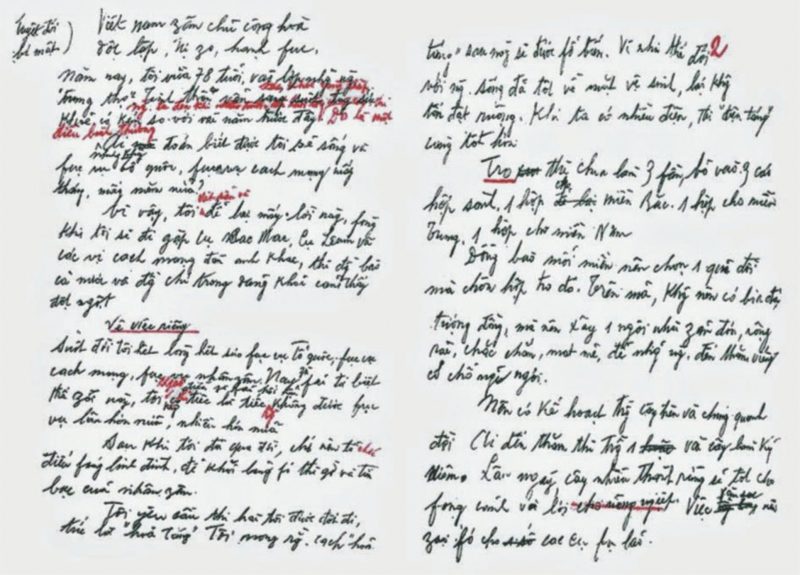 Tuyệt đối
bí mật
Việt nam zân chủ cộng hoà
độc lập, tự zo, hạnh fúc.
Năm nay, tôi vừa 78 tuổi, vào lớp những người
"trung thọ". Tinh thần
khoẻ so với vài năm trước đây. Đó là một
điều bình thường
Ai mà đoán biết được tôi sẽ sống và
fục vụ tổ quốc, fục vụ cách mạng mấy
tháng, mấy năm nữa?
Vì vậy, tôi để lại mấy lời này, fòng
khi tôi sẽ đi gặp cụ Các Mác, cụ Lênin và
các vị cách mạng đàn anh khác, thì đồng bào
cả nước và đồng chí trong đảng khỏi cảm thấy
đột ngột
Về việc riêng
Suốt đời tôi hết lòng hết sức fục vụ tổ quốc, fục vụ
cách mạng, fục vụ nhân zân. Nay fải từ biệt
thế zới này, tôi tiếc là tiếc không được fục
vụ lâu hơn nữa, nhiều hơn nữa
Sau khi tôi đã qua đời, chớ nên tổ chức
điếu fúng linh đình, để khỏi lãng fí thì zờ và tiền
bạc của nhân zân.
Tôi yêu cầu thi hài tôi được đốt đi,
tức là "hoả táng". Tôi mong rằng cách "hoả
2
táng" sau này sẽ được fổ biến. Vì như thế đối
với người sống đã tốt về mặt vệ sinh, lại không
tốn đất ruộng. Khi ta có nhiều điện, thì "điện táng"
càng tốt hơn.
Tro thì chia làm 3 fần, bỏ vào 3 cái
hộp sành, 1 hộp cho miền Bắc. 1 hộp cho miền
Trung, 1 hộp cho miền Nam
Đồng bào mỗi miền nên chọn 1 quả đồi
mà chôn hộp tro đó. Trên mả, không nên có bia đá
tượng đồng, mà nên xây 1 ngôi nhà zản đơn, rộng
rãi, chắc chắn, mát mẻ, để những người đến thăm viếng
có chỗ nghỉ ngơi.
Nên có kế hoạch trồng cây trên và chung quanh
đồi. Ai đến thăm thì trồng 1 vài cây làm kỷ
niệm. Lâu ngày, cây nhiều thành rừng sẽ tốt cho
fong cảnh và lợi cho nông nghiệp. Việc săn sóc nên
zao fó cho các cụ fụ lão.